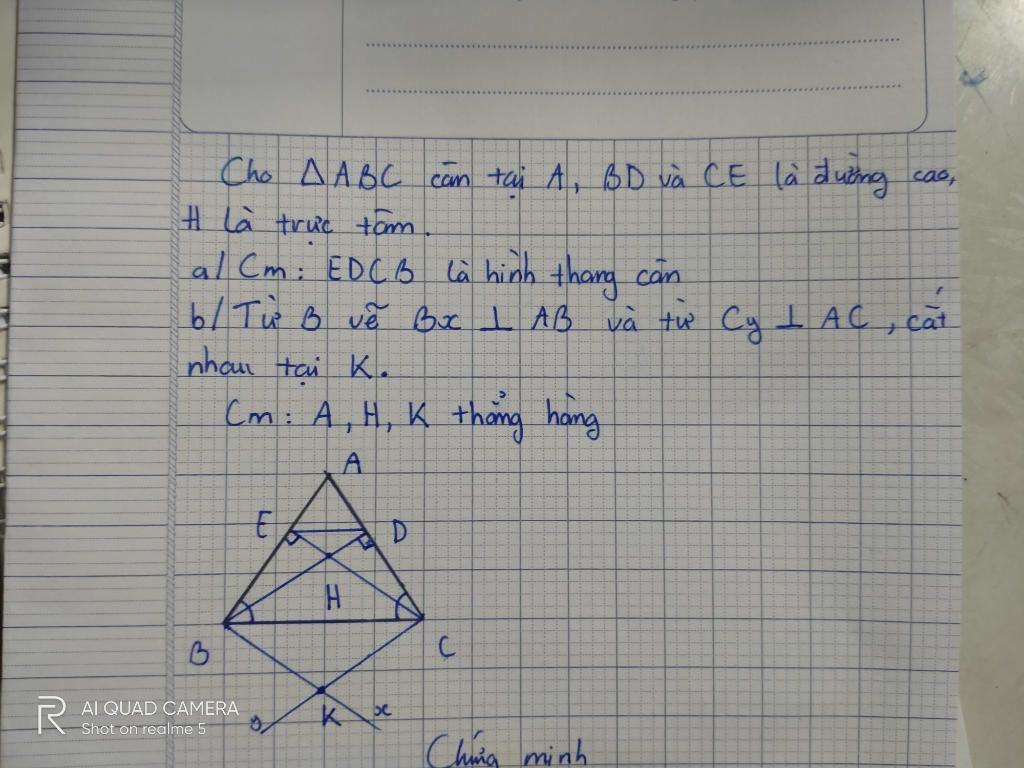 Cho ΔABC cân tại A, BD và CE là đường cao,
H là trực tâm.
a/ Cm: EDCB là hình thang cân
b/ Từ B vẽ Bx ⊥ AB và từ Cy ⊥ AC, cắt
nhau tại K.
Cm: A, H, K thẳng hàng
A
E
D
H
B
C
K
x
y
AI QUAD CAMERA
Shot on realme 5
Chứng minh